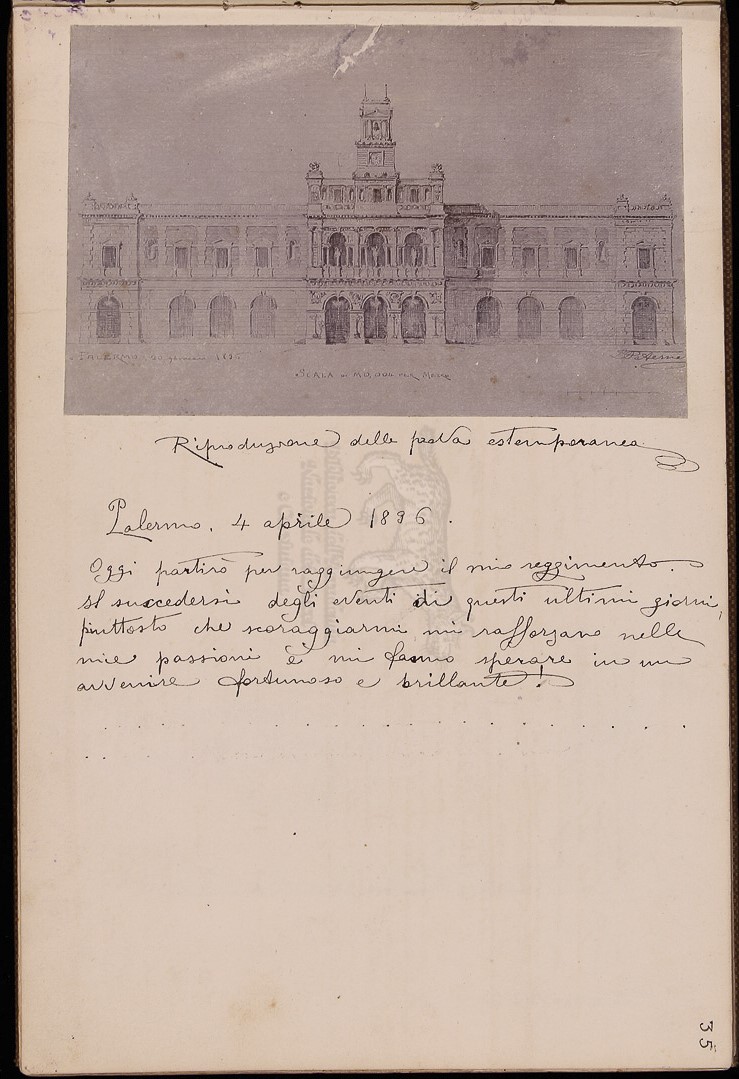 PALERMO, gennaio 1896
SCALA di M 0,004 PER METRO
Riproduzione della prova estemporanea
Palermo, 4 aprile 1896.
Oggi partirò per raggiungere il mio reggimento.
Il succedersi degli eventi di questi ultimi giorni,
piuttosto che scoraggiarmi, mi rafforzano nelle
mie passioni e mi fanno sperare in un
avvenire fortunoso e brillante!
35